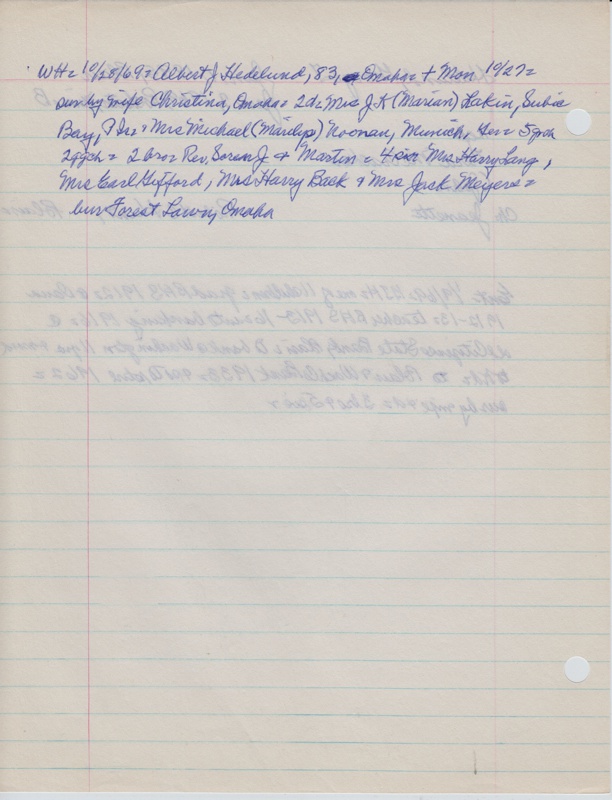 WH = 10/28/69 = Albert J Hedelund, 83, Omaha = + Mon 10/27 =
sur by wife Christina, Omaha = 2d = Mrs J.K (Marian) Lakin, Subic
Bay, P Is = Mrs Michael (Marilyn) Noonan, Munich, Ger = 5 gch
2ggch = 2 bro = Rev. Soren J. + Martin = 4 sis Mrs Harry Lang,
Mrs Carl Gifford, Mrs Harry Back + Mrs Jack Meyers =
bur Forest Lawn, Omaha